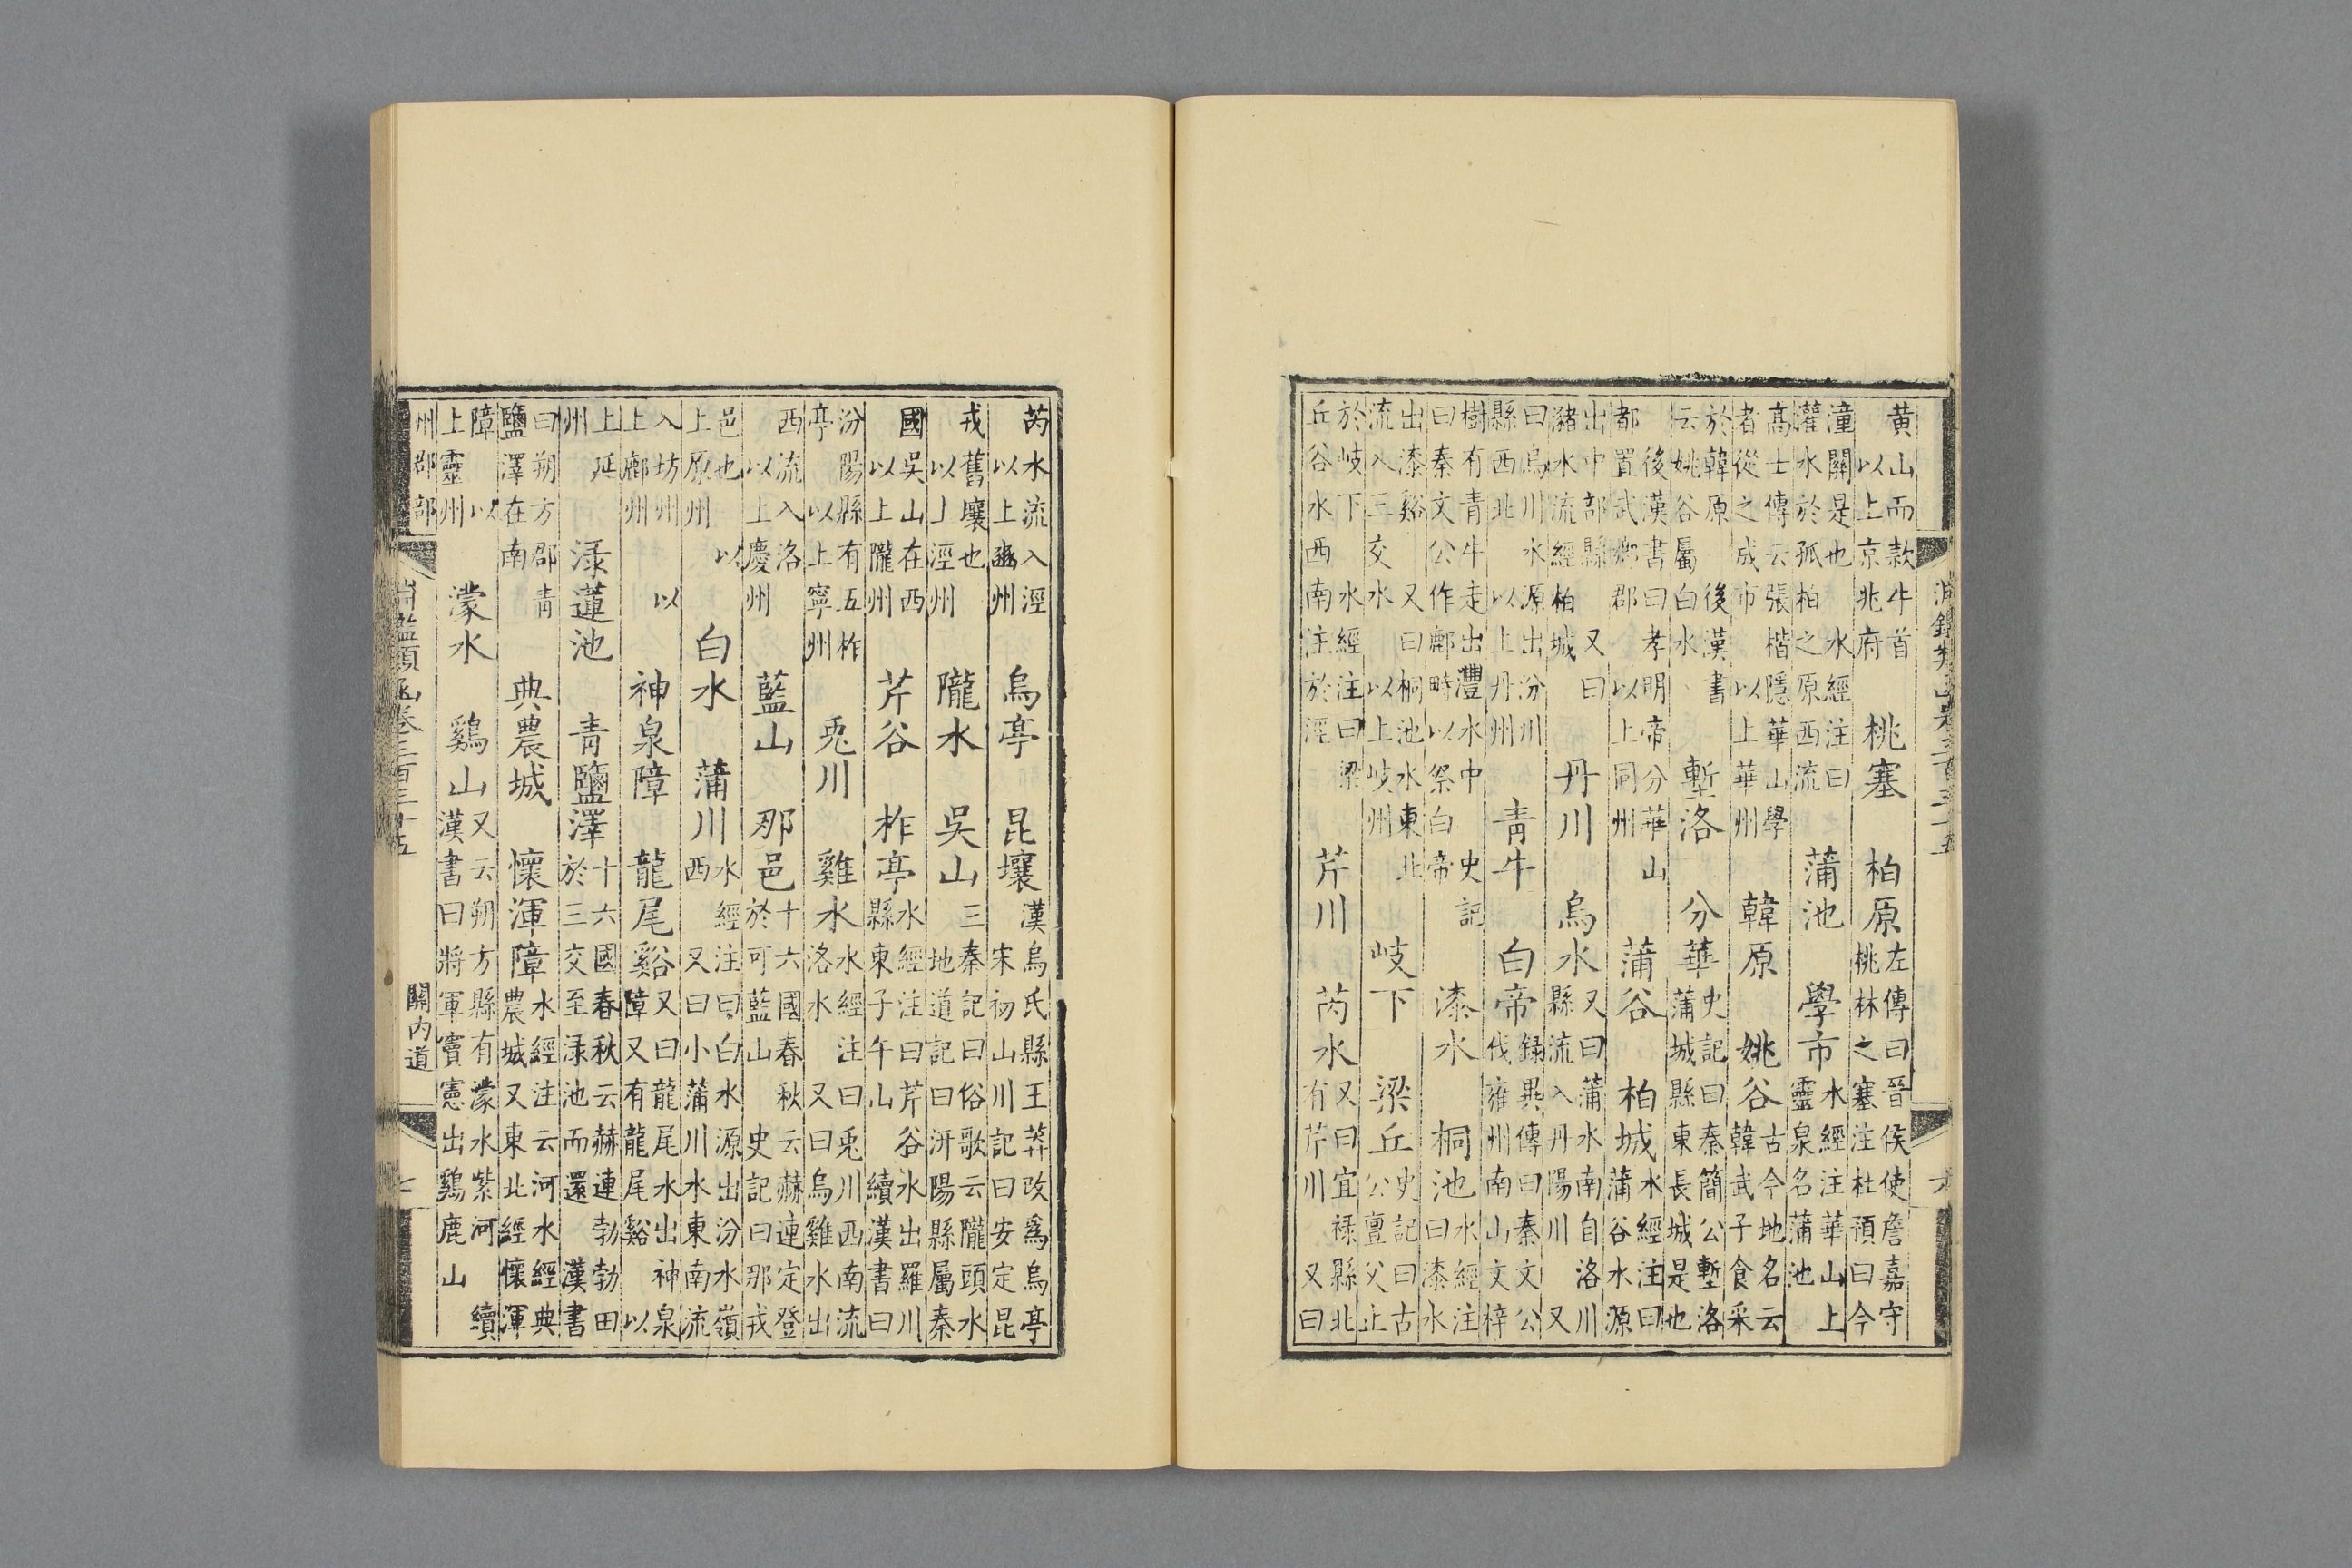 淵鑑類函卷三百三十五
六
黄山而款牛首
以上京兆府
桃塞 柏原
左傳曰晉侯使詹嘉守
桃林之塞注杜預曰今
潼關是也 水經注曰
灌水於孤柏之原西流
蒲池 學市
水經注華山上
靈泉名蒲池
高士傳云張楷隱華山學
者從之成市 以上華州
韓原 姚谷
古今地名云
韓武子食采
於韓原 後漢書
云姚谷屬白水
塹洛 分華
史記曰秦簡公塹洛
蒲城縣東長城是也
後漢書曰孝明帝分華山
都置武鄉郡 以上同州
蒲谷 柏城
水經注曰
蒲谷水源
出中部縣 又曰
瀦水流經柏城
丹川 烏水
又曰蒲水南自洛川
縣流入丹陽川 又
曰烏川水源出汾川
縣西北 以上丹州
青牛 白帝
録異傳曰秦文公
伐雍州南山文梓
樹有青牛走出灃水中 史記
曰秦文公作鄜畤以祭白帝
漆水 桐池
水經注
曰漆水
出漆谿 又曰桐池水東北
流入三交水 以上岐州
岐下 梁丘
史記曰古
公亶父止
於岐下 水經注曰梁
丘谷水西南注於涇
芹川 芮水
又曰宜禄縣北
有芹川 又曰
芮水流入涇
以上豳州
烏亭 昆壤
漢烏氏縣王莽改爲烏亭
宋初山川記曰安定昆
戎舊壤也
以上涇州
隴水 吳山
三秦記曰俗歌云隴頭水
地道記曰汧陽縣屬秦
國吳山在西
以上隴州
芹谷 柞亭
水經注曰芹谷水出羅川
縣東子午山 續漢書曰
汾陽縣有五柞
亭以上寧州
兎川 雞水
水經注曰兎川西南流
洛水 又曰烏雞水出
西流入洛
以上慶州
藍山 那邑
十六國春秋云赫連定登
於可藍山 史記曰那戎
邑也 以
上原州
白水 蒲川
水經注曰白水源出汾水嶺
西 又曰小蒲川水東南流
入坊州 以
上鄜州
神泉障 龍尾谿
又曰龍尾水出神泉
障又有龍尾谿 以
上延
州
渌蓮池 青鹽澤
十六國春秋云赫連勃勃田
於三交至渌池而還 漢書
曰朔方郡青
鹽澤在南
典農城 懷渾障
水經注云河水經典
農城又東北經懷渾
障 以
上靈州
濛水 鷄山
又云朔方縣有濛水紫河 續
漢書曰將軍竇憲出鷄鹿山
州郡部
淵鑑類函卷三百三十五
關内道
七